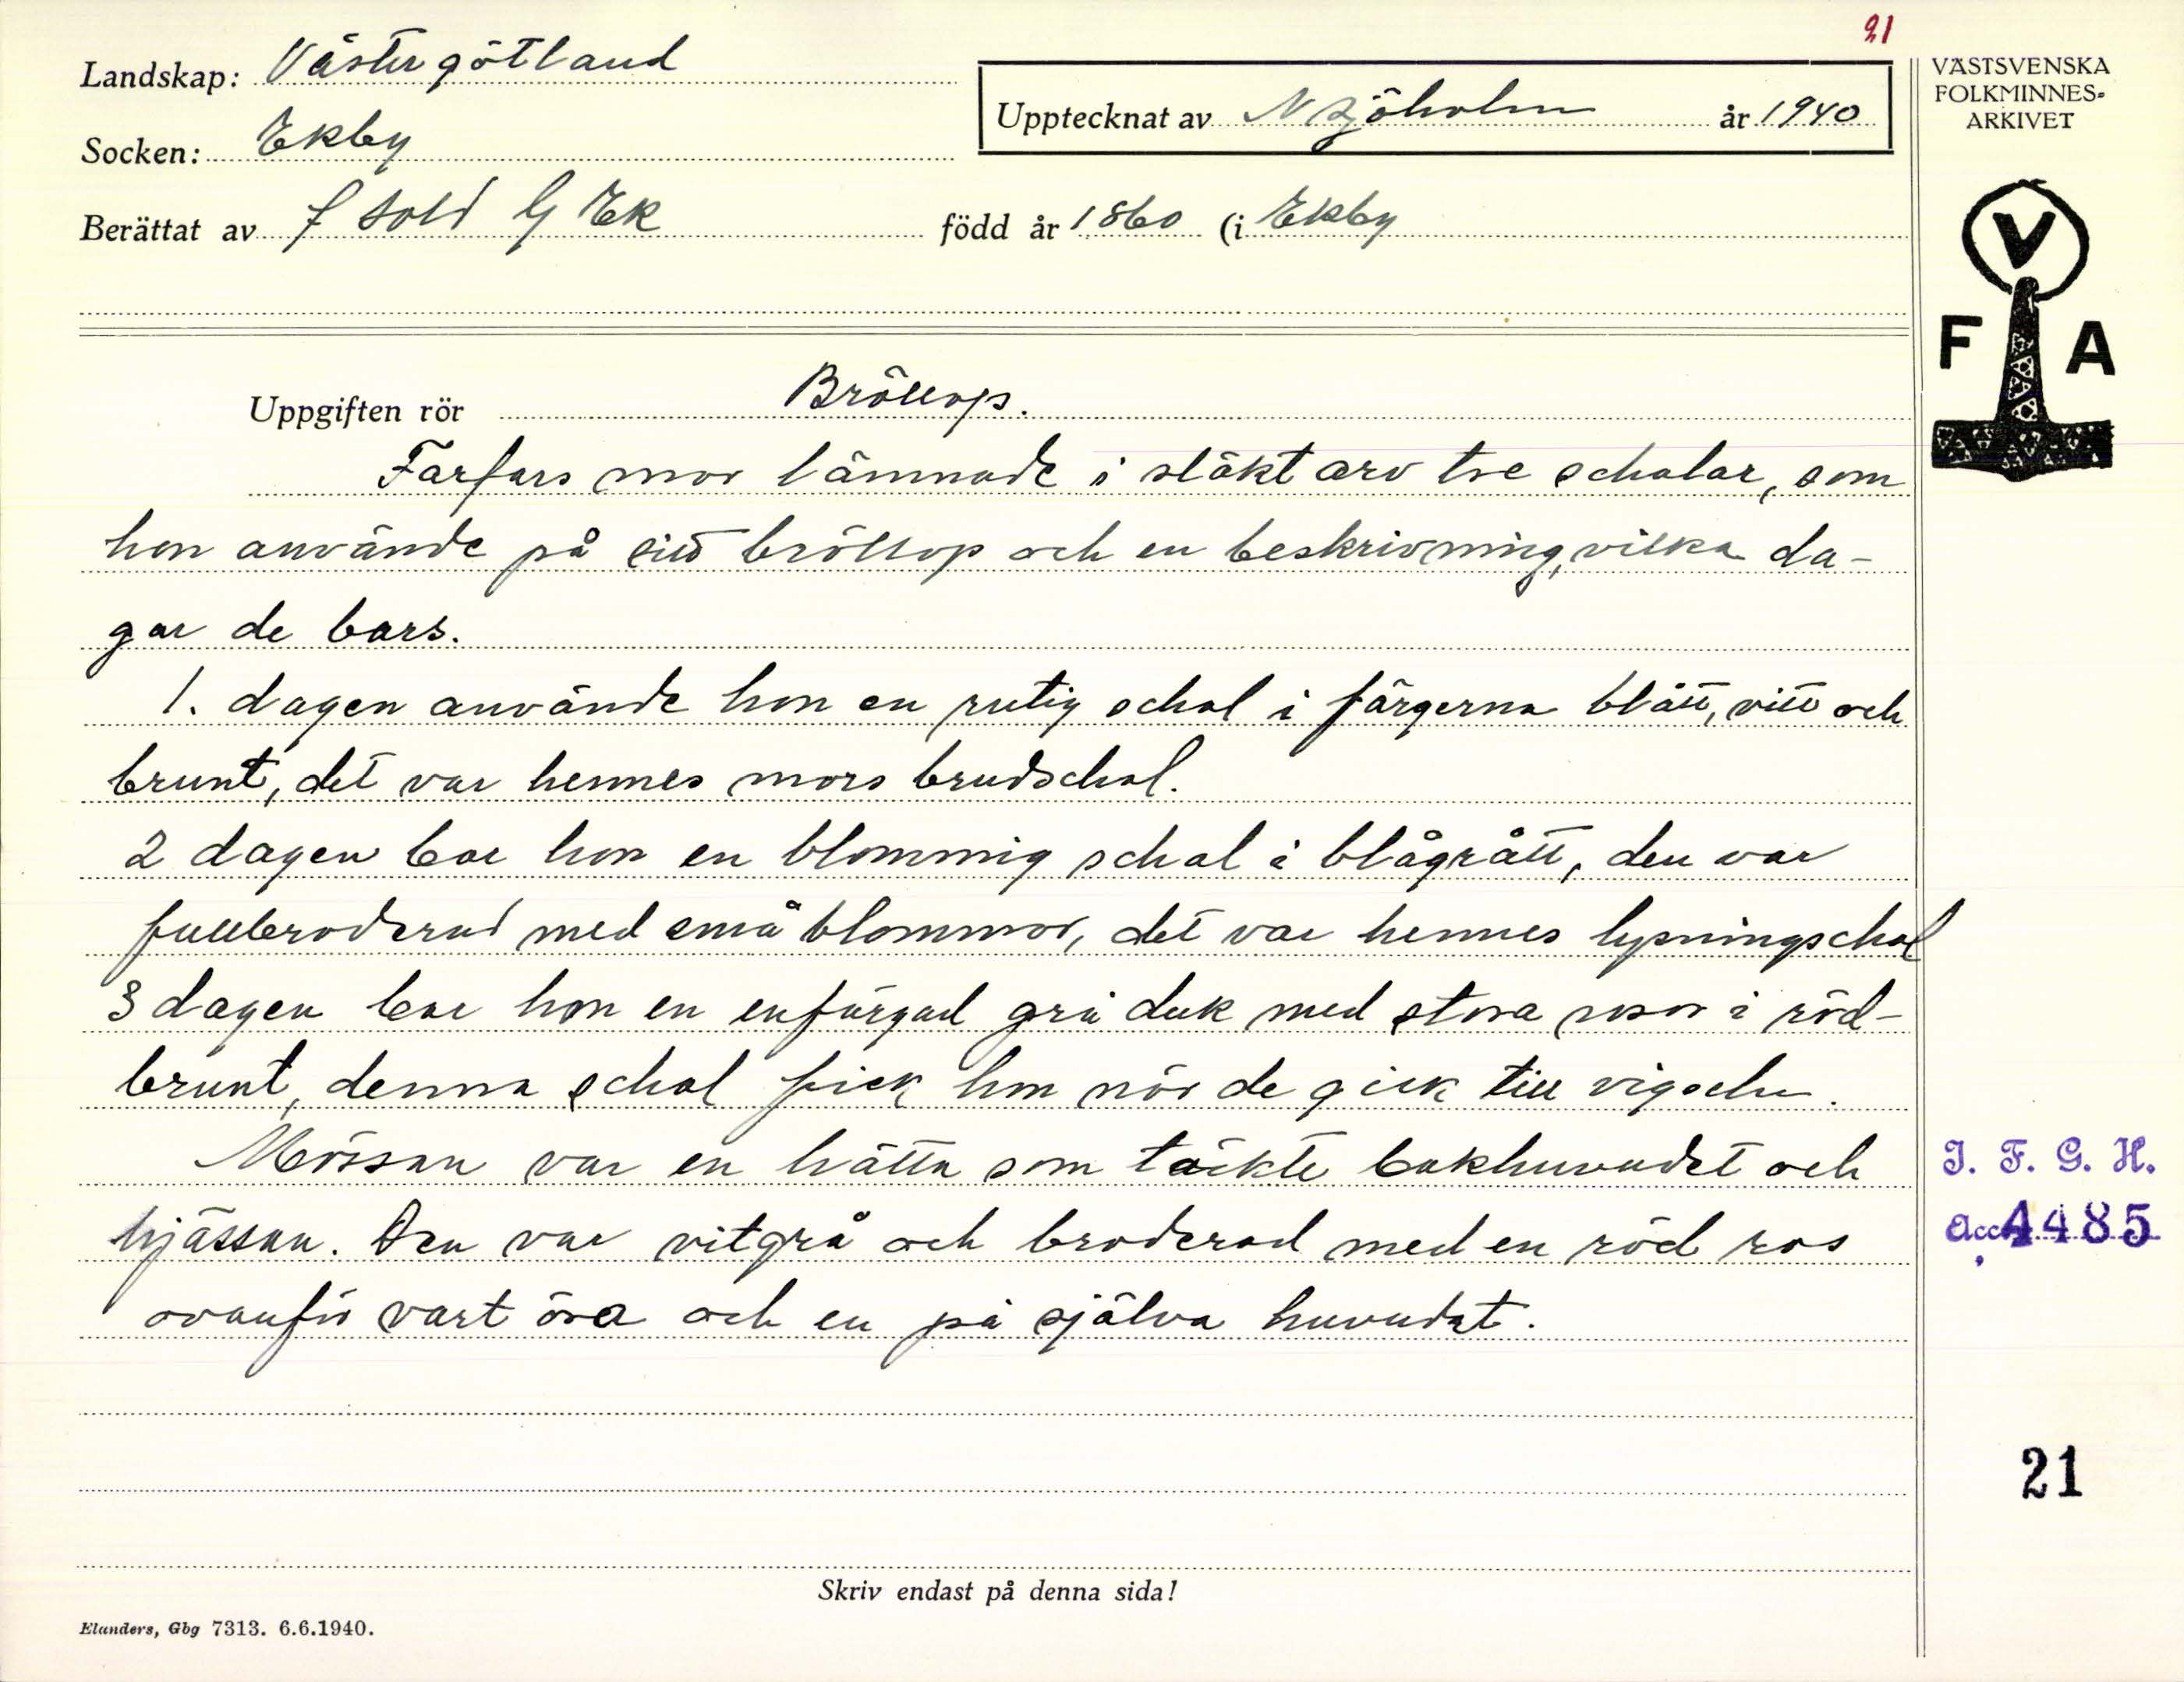 21
Landskap: Västergötland
VÄSTSVENSKA
FOLKMINNES-
ARKIVET
Upptecknat av N Sjöholm år 1940
Socken: Ekby
Berättat av f sold G Ek född år 1860 (i Ekby
V
F A
Uppgiften rör Bröllop.
Farfars mor lämnade i släkt arv tre schalar, som
hon använde på sitt bröllop och en beskrivning, vilka da-
gar de bars.
1. dagen använde hon en rutig schal i färgerna blått, vitt och
brunt, det var hennes mors brudschal.
2 dagen bar hon en blommig schal i blågrått, den var
fullbroderad med små blommor, det var hennes lysningschal
3 dagen bar hon en enfärgad grå duk med stora rosor i röd-
brunt, denna schal fick hon när de gick till vigseln.
Mössan var en hätta som täckte bakhuvudet och
hjässan. Den var vitgrå och broderad med en röd ros
ovanför vart öra och en på själva huvudet.
I. F. G. H.
Acc. 4485
21
Skriv endast på denna sida!
Elanders, Gbg 7313. 6.6.1940.